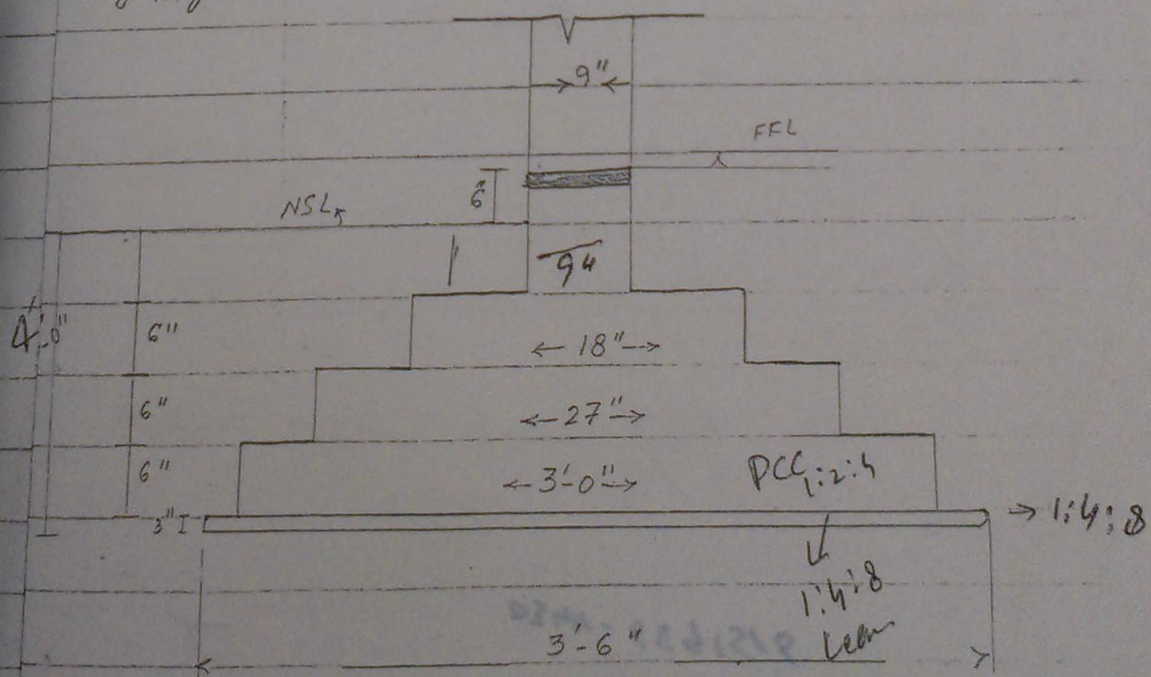 9"
FFL
6"
NSL
94
4'-0"
6"
18"
6"
27"
6"
3'-0"
PCC 1:2:4
3"
1:4:8
1:4:8
Lean
3'-6"